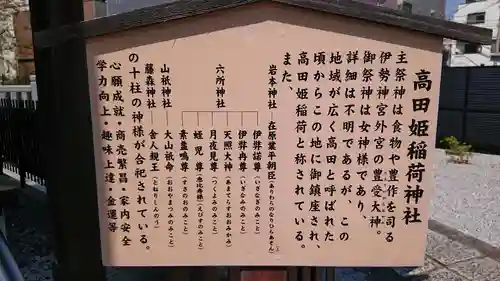 高田姫稲荷神社
主祭神は食物や豊作を司る
伊勢神宮外宮の豊受大神。
御祭神は女神様であり、
詳細は不明であるが、この
地域が広く高田と呼ばれた
頃からこの地に御鎮座され、
高田姫稲荷と称されている。
また、
岩本神社 在原業平朝臣(ありわらのなりひらあそん)
六所神社
伊弉諾尊(いざなぎのみこと)
伊弉冉尊(いざなみのみこと)
天照大神(あまてらすおおみかみ)
月夜見尊(つくよみのみこと)
蛭児尊(恵比寿様)(えびすのみこと)
素盞鳴尊(すさのおのみこと)
山祇神社 大山祇命(おおやまつみのみこと)
藤森神社 舎人親王(とねりしんのう)
の十柱の神様が合祀されている。
心願成就・商売繁昌・家内安全
学力向上・趣味上達・金運等